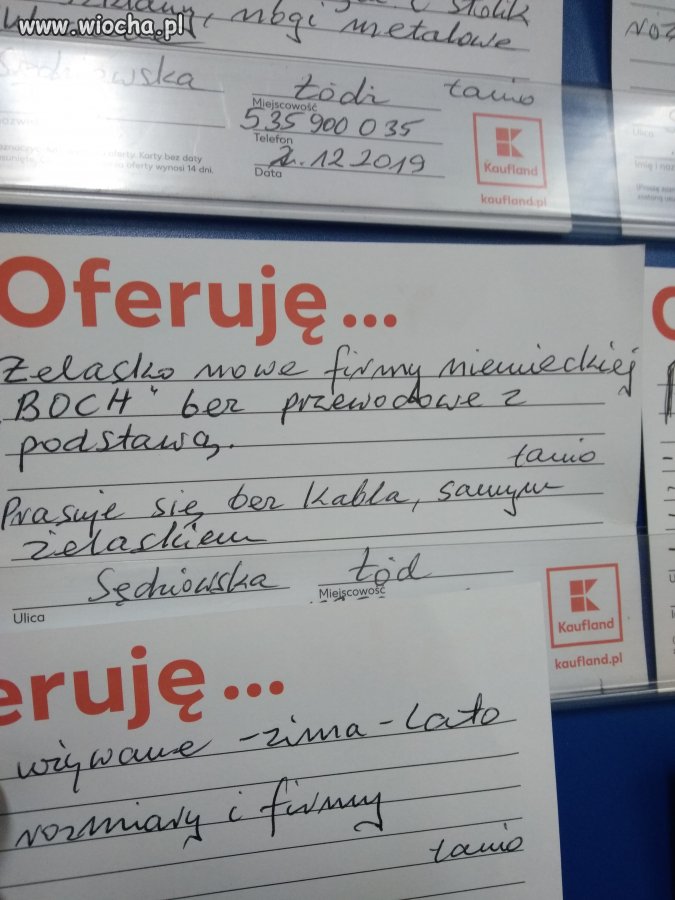 www.wiocha.pl
i stolik
nogi metalowe
NOZ
Sędziowska
Łódź tanio
Miejscowość
535 900 035
Telefon
2.12 2019
Data
oferty. Karty bez daty
oferty wynosi 14 dni.
Kaufland
kaufland.pl
Ulica
Oferuję...
Żelasko nowe firmy niemieckiej
„BOCH" bez przewodowe z
podstawą.
tanio
Prasuje się bez kabla, samym
żelaskiem
Sędziowska Łód
Ulica
Miejscowość
Kaufland
kaufland.pl
eruję...
używane - zima - Lato
rozmiary i firmy
tanio